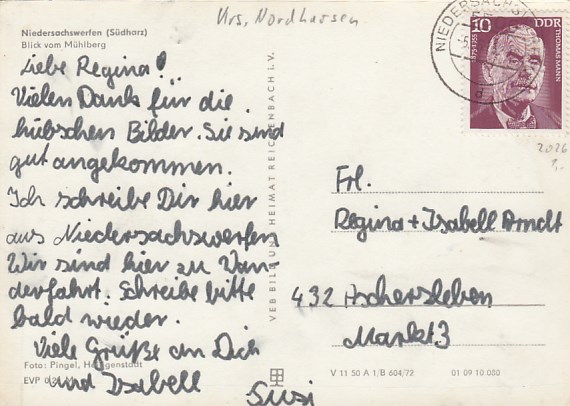 Krs. Nordhausen
Niedersachswerfen (Südharz)
Blick vom Mühlberg
Liebe Regina!
Vielen Dank für die
hübschen Bilder. Sie sind
gut angekommen.
Ich schreibe Dir hier
aus Niedersachswerfen
Wir sind hier zu Wan-
derfahrt. Schreibe bitte
bald wieder.
Viele Grüße an Dich
und Isabell
Susi
Foto: Pingel, Heiligenstadt
EVP
VEB BILD UND HEIMAT REICHENBACH I. V.
NIEDERSACHS
10 DDR
THOMAS MANN
1875-1955
2026
1,-
Frl.
Regina + Isabell Arndt
432 Aschersleben
Markt 3
V 11 50 A 1/B 604/72 01 09 10 080